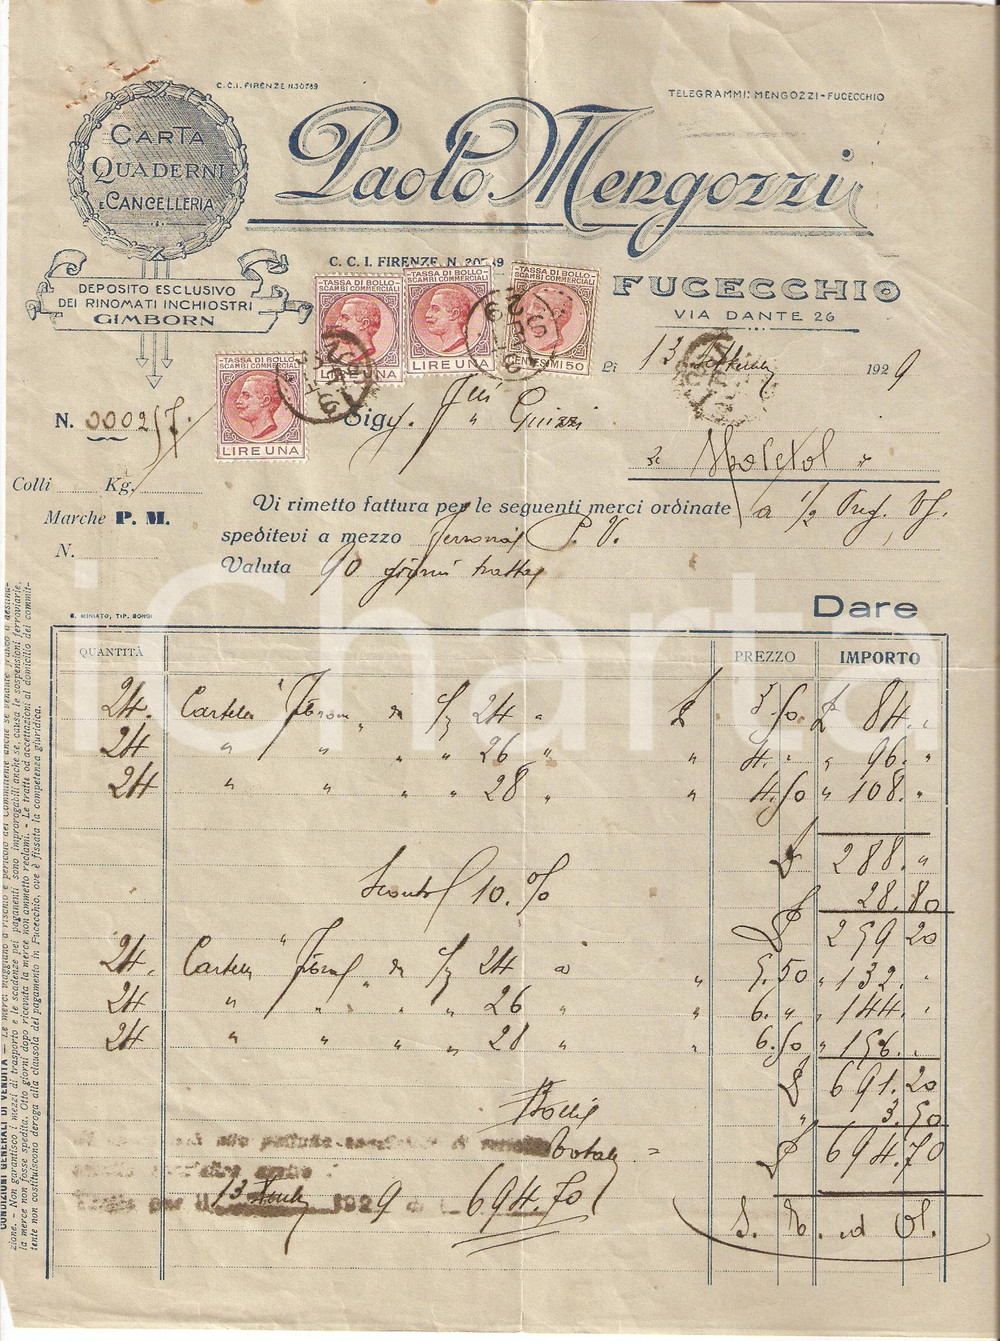 C.C.I. FIRENZE N.30789
TELEGRAMMI: MENGOZZI-FUCECCHIO
CARTA
QUADERNI
E CANCELLERIA
Paolo Mengozzi
DEPOSITO ESCLUSIVO
DEI RINOMATI INCHIOSTRI
GIMBORN
C. C. I. FIRENZE, N. 30789
FUCECCHIO
VIA DANTE 26
TASSA DI BOLLO
SCAMBI COMMERCIALI
LIRE UNA
TASSA DI BOLLO
SCAMBI COMMERCIALI
LIRE UNA
TASSA DI BOLLO
SCAMBI COMMERCIALI
CENTESIMI 50
TASSA DI BOLLO
SCAMBI COMMERCIALI
LIRE UNA
li 13 1929
N. 000257.
Sigg. F.lli Guizzi
Colli Kg.
Marche P. M.
N.
Vi rimetto fattura per le seguenti merci ordinate a 1/2
speditevi a mezzo P. V.
Valuta 90 giorni tratta
S. MINIATO, TIP. BONGI
Dare
QUANTITÀ PREZZO IMPORTO
24. Cartelle da 24 a £ 3.50 £ 84. "
24 " " " " 26 " " 4. " " 96. "
24 " " " " 28 " " 4.50 " 108. "
£ 288. "
Sconto 10.% £ 28.80
£ 259.20
24. Cartelle da 24 a " 5.50 " 132. "
24 " " " " 26 " " 6. " " 144. "
24 " " " " 28 " " 6.50 " 156. "
£ 691.20
Bolli " 3.50
Totale = £ 694.70
13 1929 di L. 694.70
S. E. ed O.
CONDIZIONI GENERALI DI VENDITA — Le merci viaggiano a rischio e pericolo del Committente anche se vendute franco a destinazione. - Non garantisco i mezzi di trasporto e le scadenze pei pagamenti sono improrogabili anche se, causa le sospensioni ferroviarie, la merce non fosse spedita. Otto giorni dopo ricevuta la merce non ammetto reclami. - Le tratte od accettazioni al domicilio del committente non costituiscono deroga alla clausola del pagamento in Fucecchio, ove è fissata la competenza giuridica.
iCharta